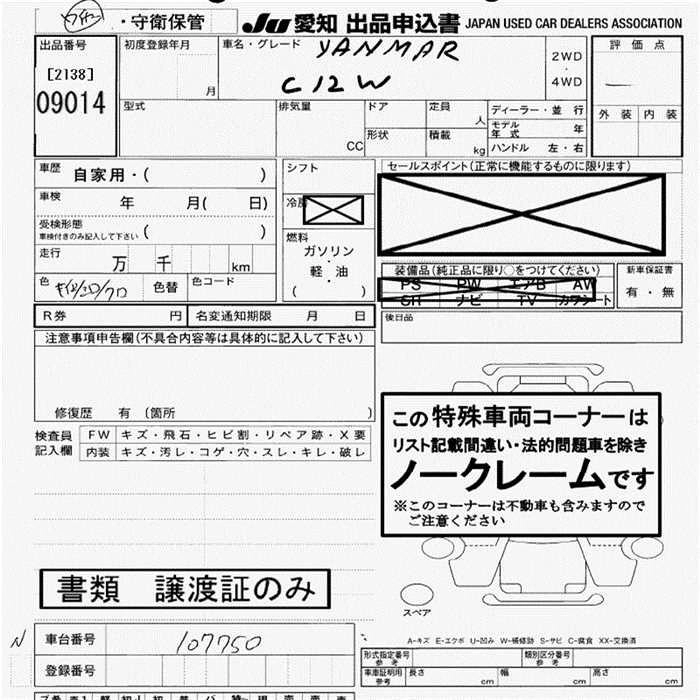 ・守衛保管
JU 愛知 出品申込書 JAPAN USED CAR DEALERS ASSOCIATION
出品番号
[2138]
09014
初度登録年月
月
車名・グレード
YANMAR
C12W
2WD
・
4WD
評価点
外装 内装
型式
排気量
CC
ドア
形状
定員
人
積載
kg
ディーラー・並行
モデル年式 年
ハンドル 左・右
車歴 自家用・( )
車検 年 月( 日)
受検形態
車検付きのみ記入して下さい ( )
走行 万 千 km
色
色替
色コード
シフト
冷房
燃料
ガソリン
・
軽・油
( )
セールスポイント(正常に機能するものに限ります)
装備品(純正品に限り○をつけてください)
PS PW エアB AW
SR ナビ TV カワシート
新車保証書
有・無
R券 円
名変通知期限 月 日
後日品
注意事項申告欄(不具合内容等は具体的に記入して下さい)
修復歴 有 (箇所 )
検査員
記入欄
FW キズ・飛石・ヒビ割・リペア跡・X要
内装 キズ・汚レ・コゲ・穴・スレ・キレ・破レ
この特殊車両コーナーは
リスト記載間違い・法的問題車を除き
ノークレームです
※このコーナーは不動車も含みますので
ご注意ください
書類 譲渡証のみ
スペア
N
車台番号 107750
登録番号
A-キズ E-エクボ U-凹み W-補修跡 S-サビ C-腐食 XX-交換済
型式指定番号
参考
類別区分番号
参考
車庫証明用
参考
長さ cm
幅 cm
高さ cm